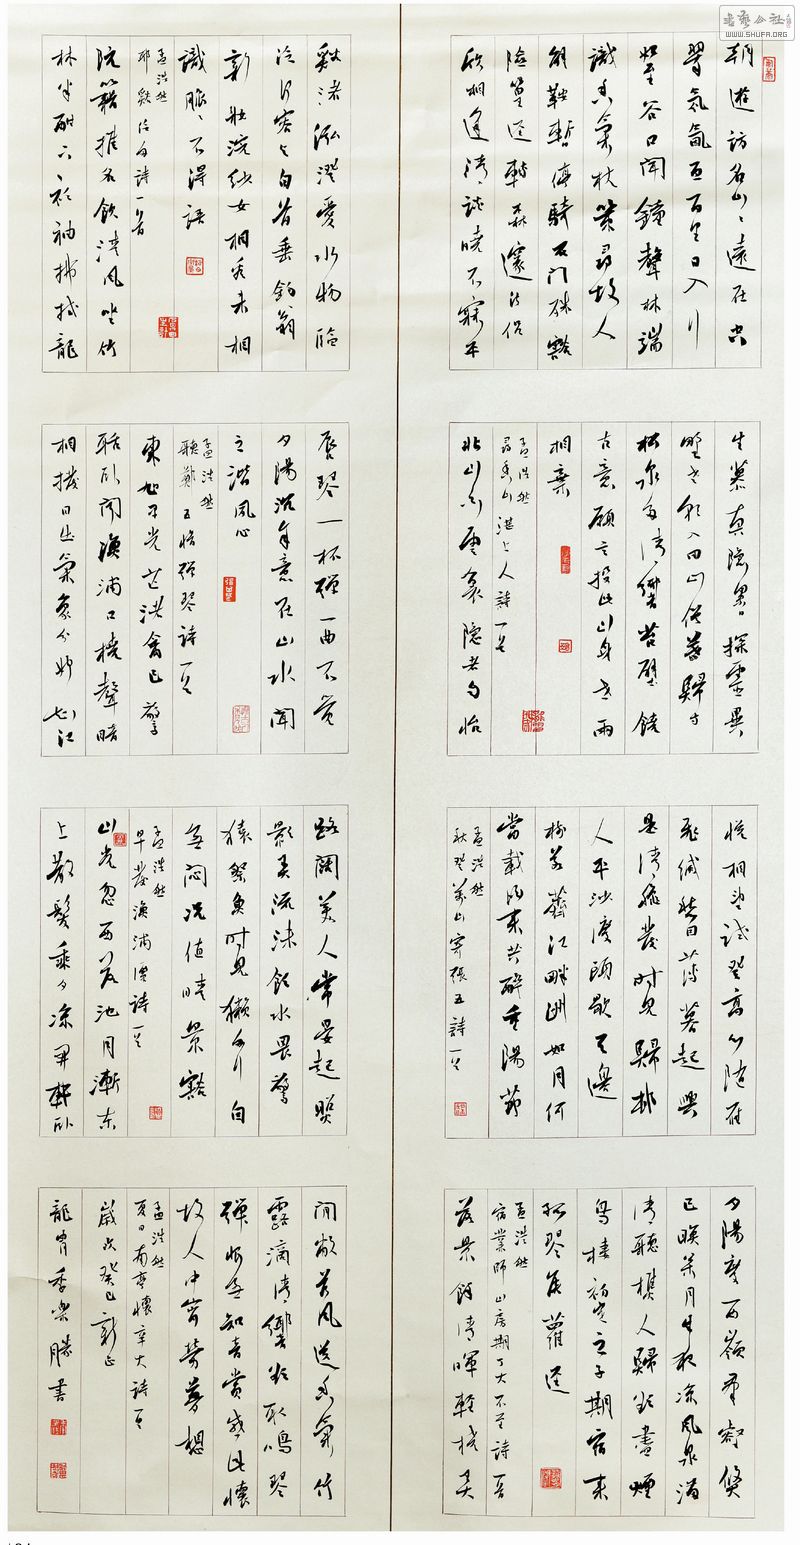 朝遊訪名山山遠在空
翠氛氳亙百里日入行
始至谷口聞鐘聲林端
識香氣杖策尋故人
解鞍暫停騎石門殊豁
險篁逕轉森邃法侶
欣相逢清談曉不寐平
生慕真隱累日探靈異
野老朝入田山僧暮歸寺
松泉多清響苔壁饒
古意願言投此山身世兩
相棄
孟浩然
尋香山湛上人詩一首
北山白雲裏隱者自怡
悅相望試登高心隨雁
飛滅愁因薄暮起興
是清秋發時見歸村
人平沙渡頭歇天邊
樹若薺江畔洲如月何
當載酒來共醉重陽節
孟浩然
秋登萬山寄張五詩一首
夕陽度西嶺群壑倏
已暝松月生夜涼風泉滿
清聽樵人歸欲盡煙
鳥棲初定之子期宿來
孤琴候蘿逕
孟浩然
宿業師山房期丁大不至詩一首
落景餘清暉輕橈弄
谿渚泓澄愛水物臨
泛何容與白首垂釣翁
新妝浣紗女相看未相
識脈脈不得語
孟浩然
耶谿泛舟詩一首
阮籍推名飲清風坐竹
林半酣下衫袖拂拭龍
唇琴一杯彈一曲不覺
夕陽沉余意在山水聞
之諧夙心
孟浩然
聽鄭五愔彈琴詩一首
東旭早光芒渚禽已驚
聒臥聞漁浦口橈聲暗
相撥日出氣象分始知江
路闊美人常晏起照
影弄流沫飲水畏驚
猿祭魚時見獺舟行自
無悶況值晴景豁
孟浩然
早發漁浦潭詩一首
山光忽西落池月漸東
上散髮乘夕涼開軒臥
閒敞荷風送香氣竹
露滴清響欲取鳴琴
彈恨無知音賞感此懷
故人中宵勞夢想
孟浩然
夏日南亭懷辛大詩一首
歲次癸巳新正
龍胄季樂勝書
書藝公社
WWW.SHUFA.ORG